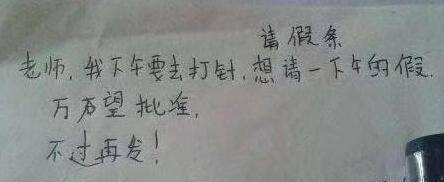 请假条
老师，我下午要去打针，想请一下午的假.
万万望批准，
不过再发！